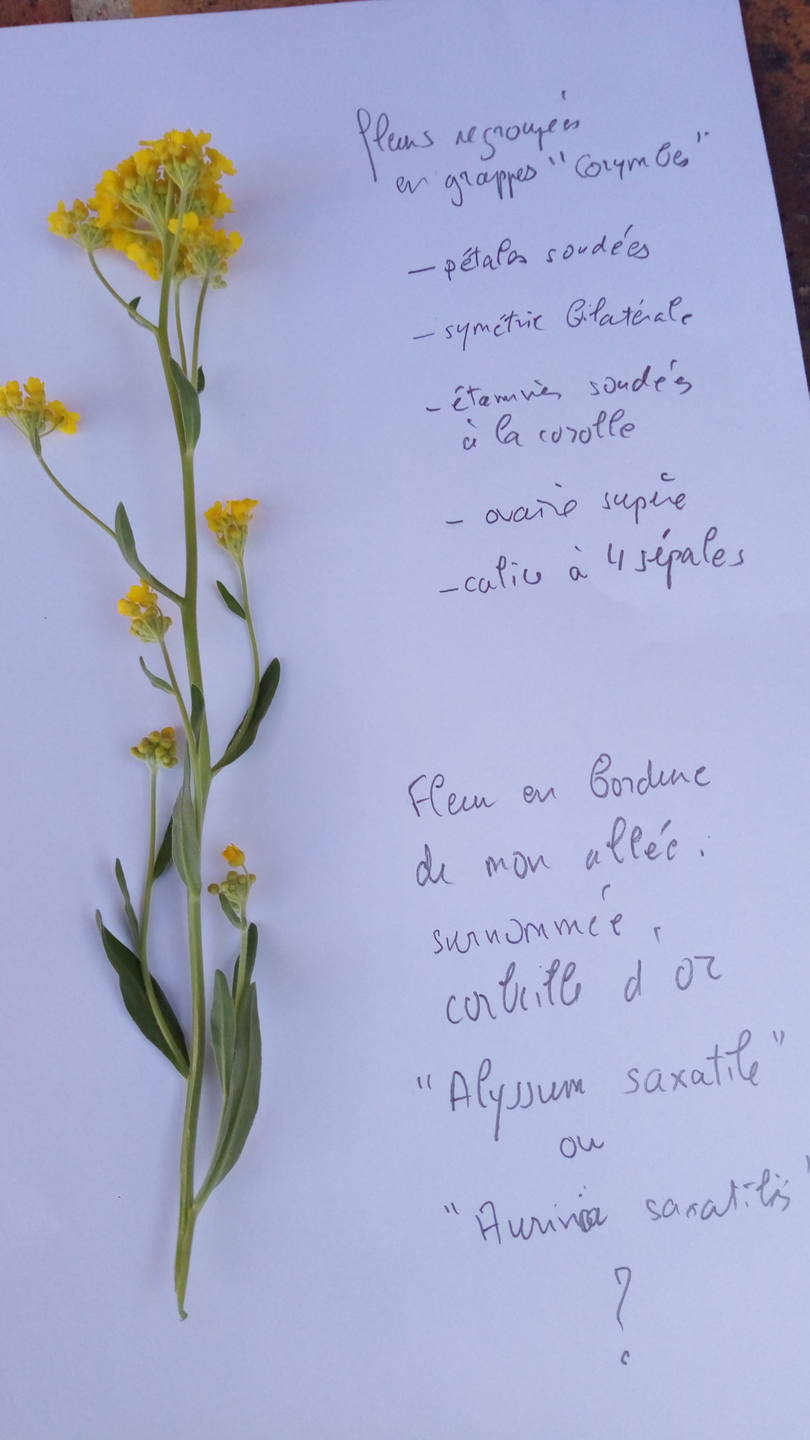 fleurs regroupées
en grappes "corymbes"
- pétales soudées
- symétrie bilatérale
- étamines soudés
à la corolle
- ovaire supère
- calice à 4 sépales
Fleur en bordure
de mon allée.
surnommée,
corbeille d'or
"Alyssum saxatile"
ou
"Aurinia saxatilis"
?